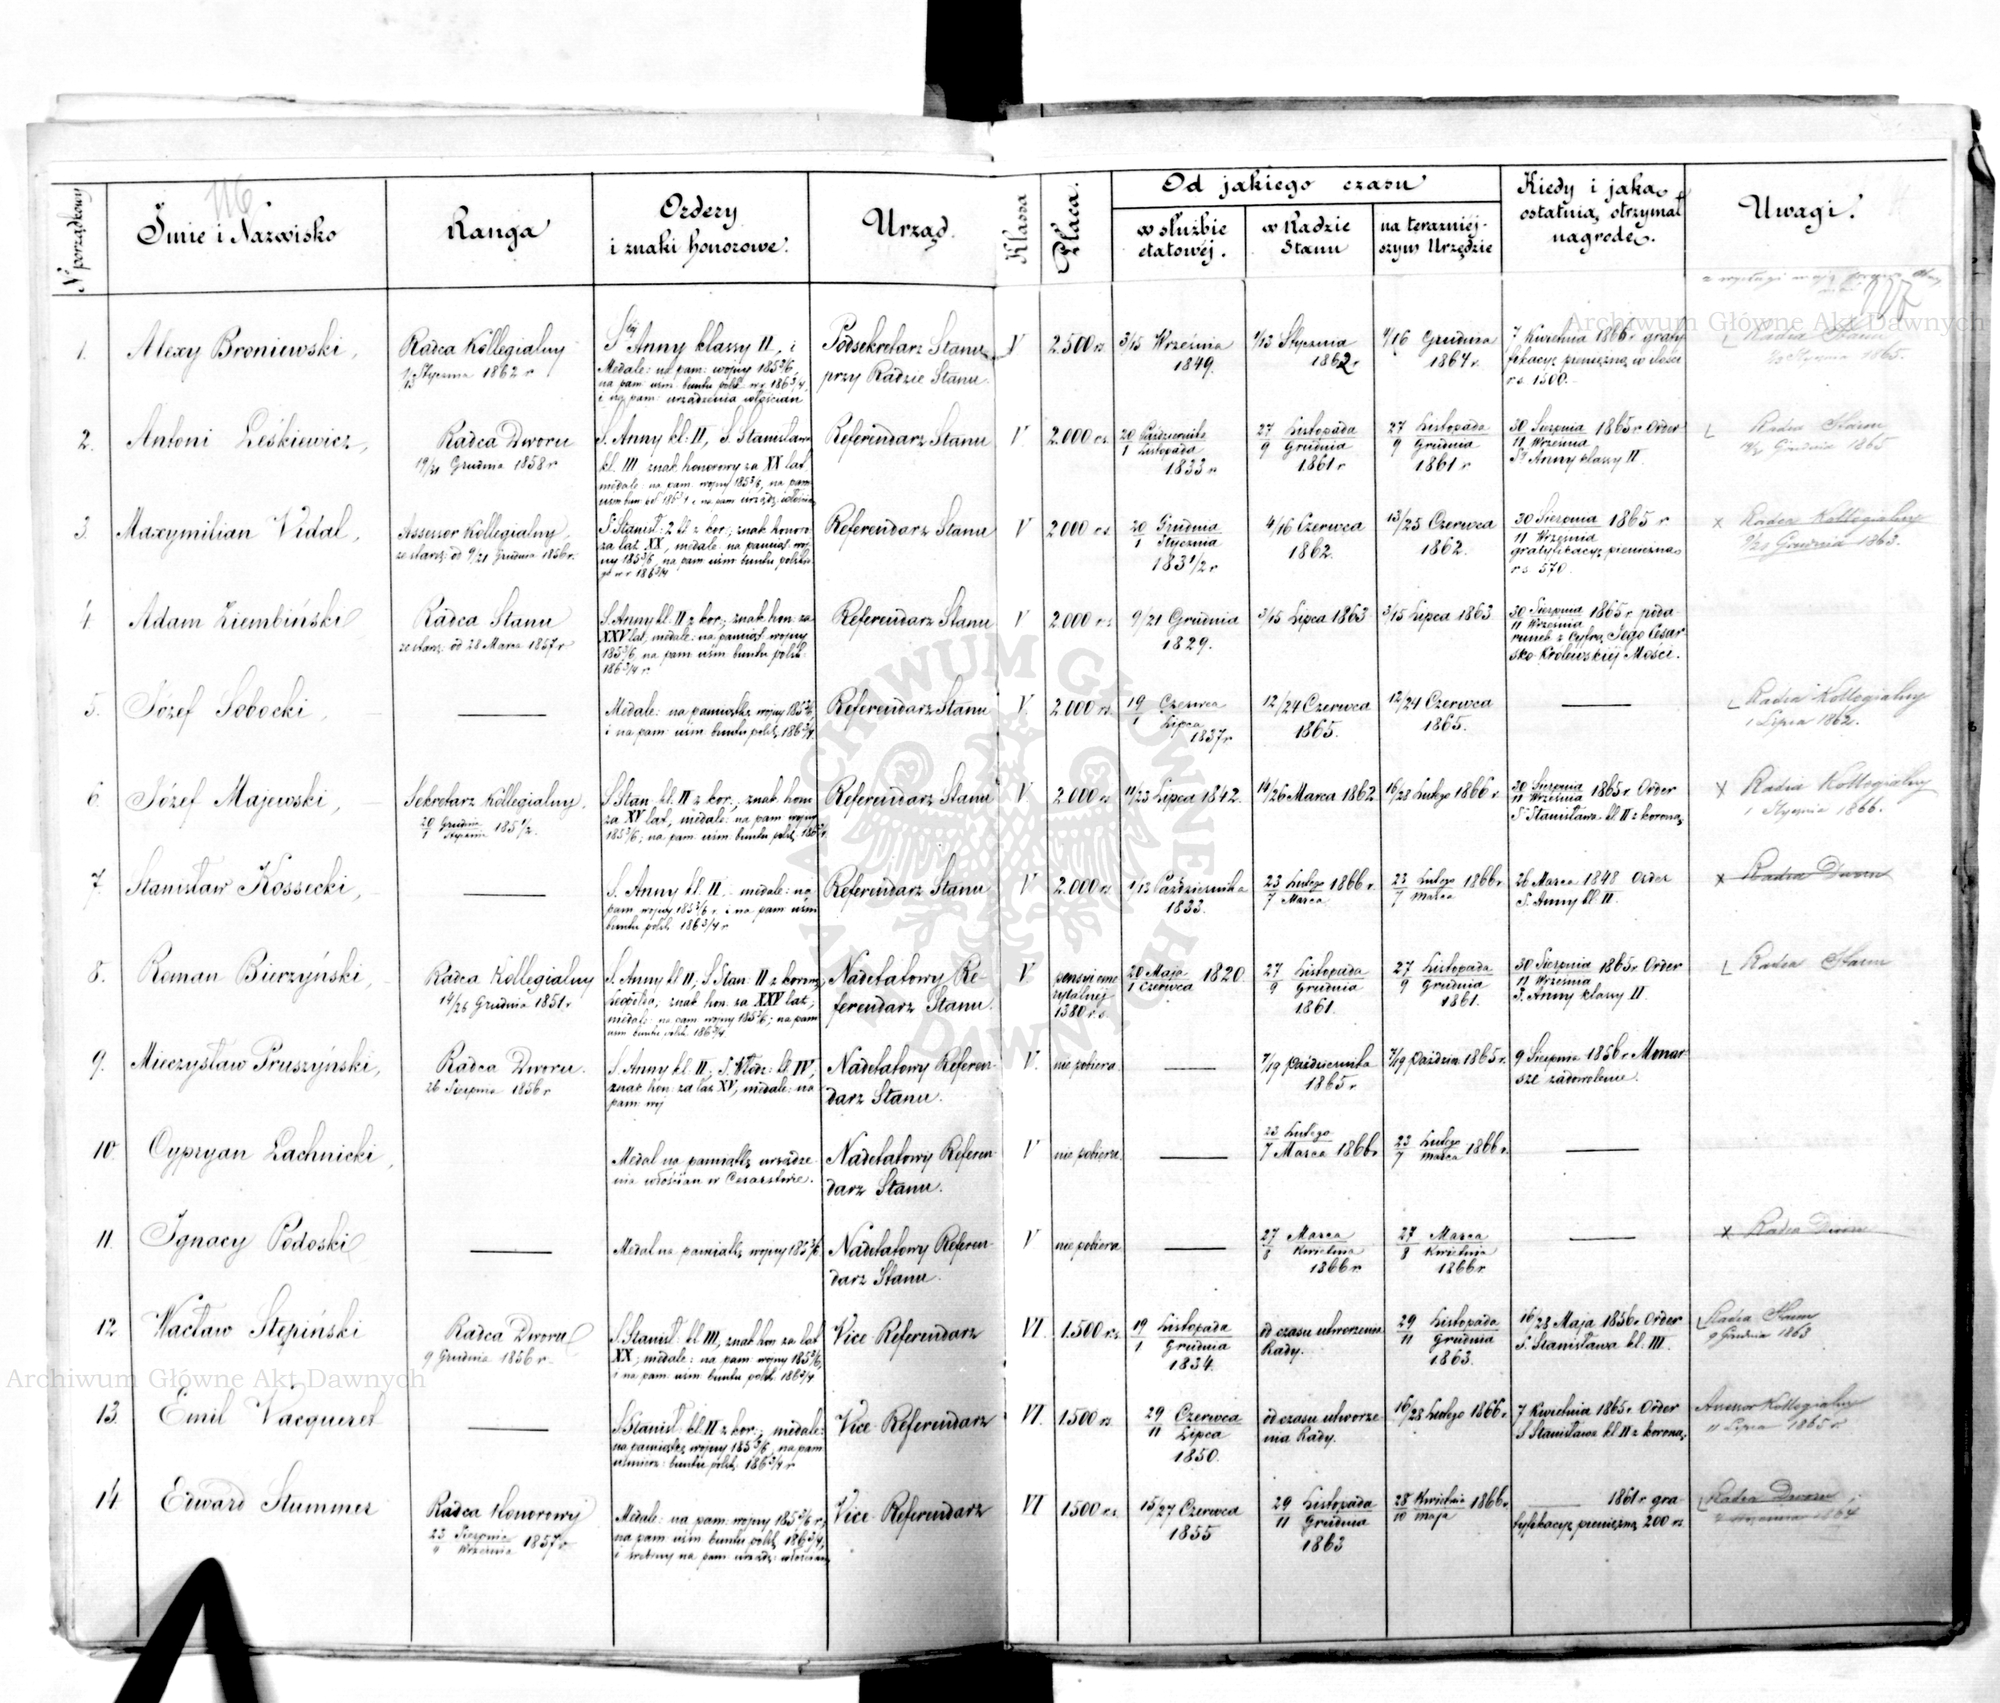 116
N porządkowy
Imie i Nazwisko
Ranga
Ordery
i znaki honorowe.
Urząd.
Klassa
Płaca.
Od jakiego czasu
w służbie
etatowéj.
w Radzie
Stanu
na teraźniéj-
szym Urzędzie
Kiedy i jaką
ostatnią otrzymał
nagrodę.
Uwagi.
117
1.
Alexy Broniewski,
Radca Kollegialny
1/13 Stycznia 1862 r
Stéj Anny klassy II, i
Medale: na pam: wojny 185 3/6,
na pam: uśm: buntu polsk: w r. 186 3/4,
i na pam: urządzenia włościan
Podsekretarz Stanu
przy Radzie Stanu.
V
2.500 rs.
3/15 Września
1849.
1/13 Stycznia
1862 r
4/16 Grudnia
1864 r.
7 Kwietnia 1866 r. graty-
fikacyę pieniężną w ilości
rs. 1500.
Radca Stanu
1/13 Stycznia 1865.
2.
Antoni Leśkiewicz,
Radca Dworu
19/31 Grudnia 1858 r
S. Anny kl: II, S. Stanisława
kl. III znak honorowy za XX lat.
medale: na pam: wojny 185 3/6, na pam:
Referendarz Stanu
V.
2.000 rs.
20 Października
1 Listopada
1833 r
27 Listopada
9 Grudnia
1861 r
27 Listopada
9 Grudnia
1861 r
30 Sierpnia 1865 r Order
11 Września
Sj Anny klassy II.
Radca Stanu
Grudnia 1865
3.
Maxymilian Vidal,
Assessor Kollegialny,
ze starsz: od 9/21 Grudnia 1856 r.
S Stanisł: 2 kl z kor:, znak honoro-
za lat XX, medale: na pamiąt: woj-
ny 185 3/6, na pam: uśm: buntu polskie-
go w r 186 3/4
Referendarz Stanu
V
2000 rs.
20 Grudnia
1 Stycznia
183 1/2 r
4/16 Czerwca
1862.
13/25 Czerwca
1862.
30 Sierpnia 1865 r
11 Września
gratyfikacyę pieniężną
rs. 570.
x Radca Kollegialny
9/21 Grudnia 1863.
4
Adam Ziembiński
Radca Stanu
ze starsz: od 28 Marca 1857 r
S. Anny kl. II z kor:, znak hon: za
XXV lat, medale: na pamiąt: wojny
185 3/6, na pam: uśm: buntu polsk:
186 3/4 r.
Referendarz Stanu
V
2.000 rs.
9/21 Grudnia
1829.
3/15 Lipca 1863
3/15 Lipca 1863
30 Sierpnia 1865 r. poda-
11 Września
runek z Cyfrą Jego Cesar-
sko-Królewskiéj Mości.
5.
Józef Sobocki,
Medale: na pamiątkę wojny 185 3/6,
i na pam: uśm: buntu polsk: 186 3/4
Referendarz Stanu
V
2.000 rs.
19 Czerwca
1 Lipca
1837 r
12/24 Czerwca
1865.
12/24 Czerwca
1865.
Radca Kollegialny
1 Lipca 1862.
6.
Józef Majewski,
Sekretarz Kollegialny,
20 Grudnia
1 Stycznia 185 1/2.
S Stan: kl. II z kor:, znak hon:
za XV lat, medale: na pam wojny
185 3/6, na pam: uśm: buntu polsk 186 3/4.
Referendarz Stanu
V
2.000 rs
11/23 Lipca 1842.
14/26 Marca 1862
16/28 Lutego 1866 r.
30 Sierpnia 1865 r. Order
11 Września
Sj Stanisława kl. II z koroną
x Radca Kollegialny
1 Stycznia 1866.
7.
Stanisław Kossecki,
S. Anny kl. II. medale: na
pam: wojny 185 3/6 r. i na pam: uśm:
buntu polsk 186 3/4 r
Referendarz Stanu
V
2.000 rs
1/13 Października
1833.
23 Lutego 1866 r.
7 Marca
23 Lutego 1866 r
7 Marca
26 Marca 1848 Order
S. Anny kl. II.
x Radca Dworu
8.
Roman Bierzyński,
Radca Kollegialny
14/26 Grudnia 1851 r
S. Anny kl II, S Stan: II z koroną
znak hon. za XXV lat,
medale: na pam: wojny 185 3/6, na pam
uśm: buntu polsk. 186 3/4
Nadetatowy Re-
ferendarz Stanu.
V
pensyi eme-
rytalnéj
1380 r.s.
20 Maja 1820.
1 Czerwca
27 Listopada
9 Grudnia
1861.
27 Listopada
9 Grudnia
1861.
30 Sierpnia 1865 r. Order
11 Września
S. Anny klassy II.
Radca Stanu
9.
Mieczysław Pruszyński,
Radca Dworu.
26 Sierpnia 1856 r
S. Anny kl: II, S. Włodz: kl IV,
znak hon: za lat XV, medale: na
pam: woj
Nadetatowy Referen-
darz Stanu.
V.
nie pobiera.
7/19 Października
1865 r
7/19 Paździer: 1865 r.
9 Sierpnia 1856 r. Monar-
sze zadowolenie.
10.
Cypryan Lachnicki,
Medal na pamiątkę urządze-
nia włościan w Cesarstwie.
Nadetatowy Referen-
darz Stanu.
V
nie pobiera.
23 Lutego
7 Marca 1866 r
23 Lutego 1866 r.
7 Marca
11.
Ignacy Podoski
Medal na pamiątkę wojny 185 3/6
Nadetatowy Referen-
darz Stanu.
V
nie pobiera
27 Marca
8 Kwietnia
1866 r.
27 Marca
8 Kwietnia
1866 r
x Radca Dworu
12
Wacław Stępiński
Radca Dworu
9 Grudnia 1856 r.
S. Stanisł: kl III, znak hon za lat
XX, medale: na pam: wojny 185 3/6,
i na pam: uśm: buntu polsk. 186 3/4
Vice-Referendarz
VI.
1.500 rs.
19 Listopada
1 Grudnia
1834.
od czasu utworzenia
Rady.
29 Listopada
11 Grudnia
1863.
16/28 Maja 1856 r. Order
S. Stanisława kl. III.
Radca Stanu
9 Grudnia 1863
13.
Emil Vacqueret
S Stanisł: kl. II z kor:, medale:
na pamiątkę wojny 185 3/6, na pam:
uśmierz: buntu polsk: 186 3/4 r
Vice-Referendarz
VI.
1.500 rs
29 Czerwca
11 Lipca
1850.
od czasu utworze-
nia Rady.
16/28 Lutego 1866 r.
7 Kwietnia 1865 r. Order
S Stanisława kl II z koroną
Assessor Kollegialny
11 Lipca 1865 r
14
Edward Stummer
Radca Honorowy
23 Sierpnia
4 Września 1857 r.
Medale: na pam: wojny 185 3/6 r,
na pam: uśm: buntu polsk 186 3/4,
i srebrny na pam: urządz: włościan
Vice-Referendarz
VI
1.500 rs.
15/27 Czerwca
1855
29 Listopada
11 Grudnia
1863
28 Kwietnia 1866 r.
10 Maja
1861 r. gra-
tyfikacyę pieniężną 200 rs
Radca Dworu
Archiwum Główne Akt Dawnych
Archiwum Główne Akt Dawnych
ARCHIWUM GŁÓWNE AKT DAWNYCH